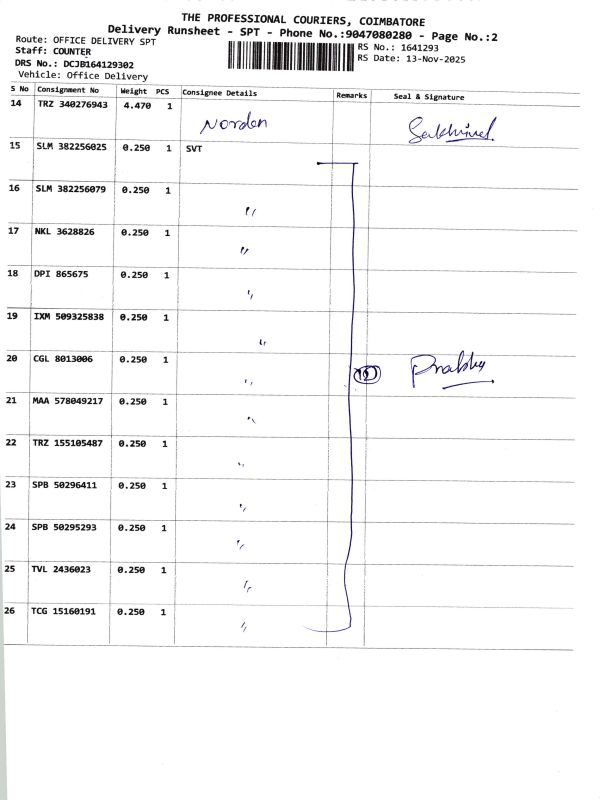 THE PROFESSIONAL COURIERS, COIMBATORE
Delivery Runsheet - SPT - Phone No.:9047080280 - Page No.:2
Route: OFFICE DELIVERY SPT
RS No.: 1641293
Staff: COUNTER
RS Date: 13-Nov-2025
DRS No.: DCJB164129302
Vehicle: Office Delivery
S No Consignment No Weight PCS Consignee Details Remarks Seal & Signature
14 TRZ 340276943 4.470 1
Norden
15 SLM 382256025 0.250 1 SVT
16 SLM 382256079 0.250 1
"
17 NKL 3628826 0.250 1
"
18 DPI 865675 0.250 1
"
19 IXM 509325838 0.250 1
"
20 CGL 8013006 0.250 1
" Prabhu
21 MAA 578049217 0.250 1
"
22 TRZ 155105487 0.250 1
"
23 SPB 50296411 0.250 1
"
24 SPB 50295293 0.250 1
"
25 TVL 2436023 0.250 1
"
26 TCG 15160191 0.250 1
"